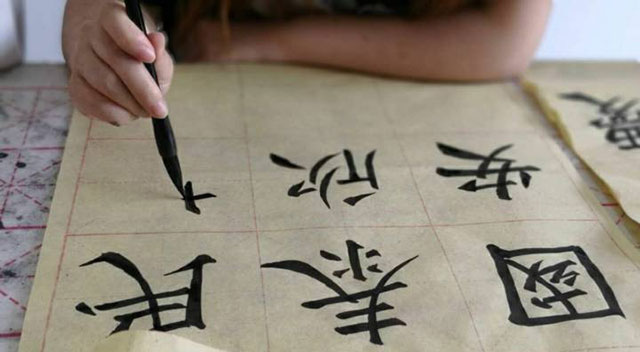 國泰民
安欣